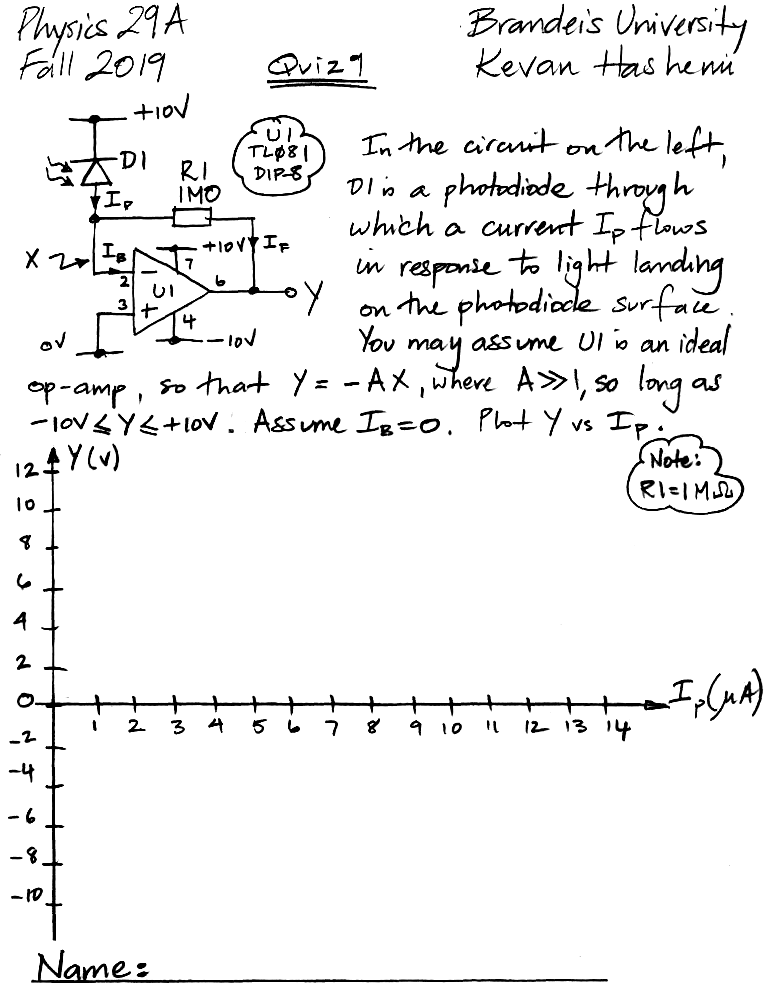 Physics 29A
Fall 2019
Quiz 9
Brandeis University
Kevan Hashemi
+10V
D1
I_P
R1
1M0
U1
TL081
DIP-8
X
I_B
+10V
I_F
7
2
U1
6
Y
3
4
0V
-10V
In the circuit on the left,
D1 is a photodiode through
which a current I_P flows
in response to light landing
on the photodiode surface.
You may assume U1 is an ideal
op-amp, so that Y = -AX, where A≫1, so long as
-10V ≤ Y ≤ +10V. Assume I_B=0. Plot Y vs I_P.
Note:
R1=1MΩ
Y(v)
12
10
8
6
4
2
0
-2
-4
-6
-8
-10
1 2 3 4 5 6 7 8 9 10 11 12 13 14
I_P(μA)
Name: